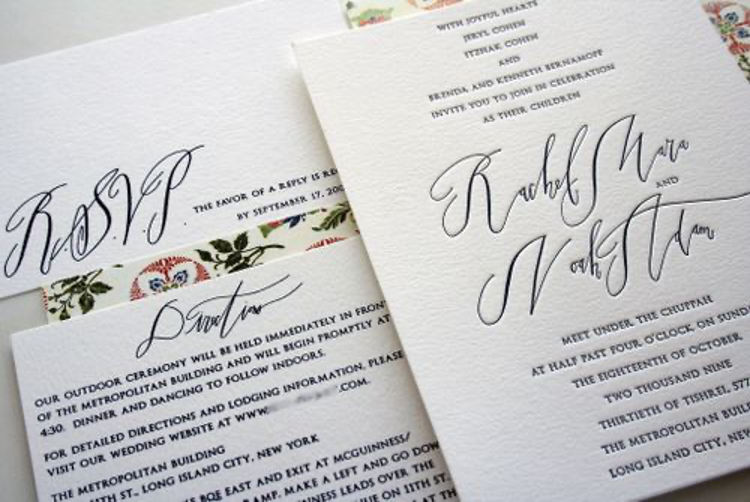 WITH JOYFUL HEARTS
JERYL COHEN
ITZHAK COHEN
AND
BRENDA AND KENNETH BERNAMOFF
INVITE YOU TO JOIN IN CELEBRATION
AS THEIR CHILDREN
Rachel Mara
AND
Noah Adam
MEET UNDER THE CHUPPAH
AT HALF PAST FOUR O'CLOCK ON SUND
THE EIGHTEENTH OF OCTOBER
TWO THOUSAND NINE
THIRTIETH OF TISHREI, 577
THE METROPOLITAN BUILDIN
LONG ISLAND CITY, NEW
R.S.V.P.
THE FAVOR OF A REPLY IS REQ
BY SEPTEMBER 17, 200
Directions
OUR OUTDOOR CEREMONY WILL BE HELD IMMEDIATELY IN FRONT
OF THE METROPOLITAN BUILDING AND WILL BEGIN PROMPTLY AT
4:30. DINNER AND DANCING TO FOLLOW INDOORS.
FOR DETAILED DIRECTIONS AND LODGING INFORMATION, PLEASE
VISIT OUR WEDDING WEBSITE AT WWW. .COM.
THE METROPOLITAN BUILDING
11TH ST., LONG ISLAND CITY, NEW YORK
BQE EAST AND EXIT AT MCGUINNESS/
RAMP. MAKE A LEFT AND GO DOW
GUINNESS LEADS OVER THE
UE ON 11TH ST.